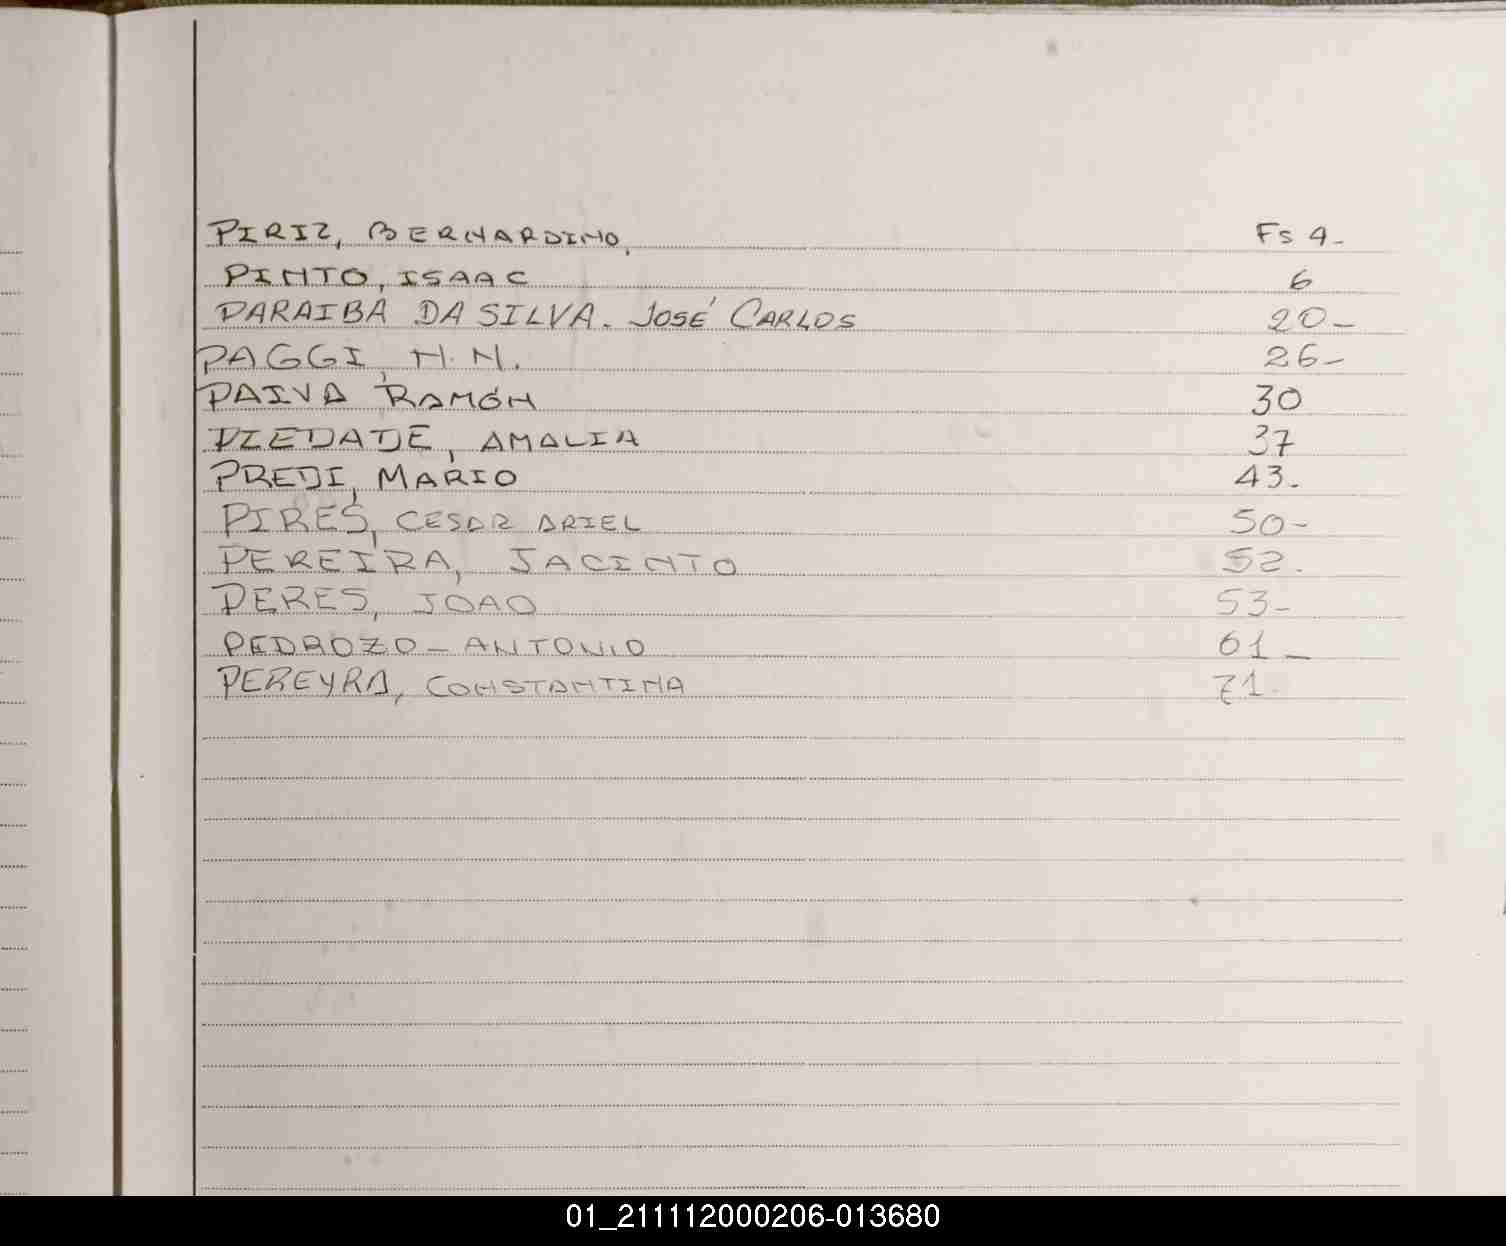 PIRIZ, BERNARDINO, Fs 4-
PINTO, ISAAC 6
PARAIBA DA SILVA. JOSÉ CARLOS 20-
PAGGI, N.N. 26-
PAIVA RAMÓN 30
PIEDADE, AMALIA 37
PREDI, MARIO 43.
PIRES, CESAR ARIEL 50-
PEREIRA, JACINTO 52.
PERES, JOAO 53-
PEDROZO - ANTONIO 61-
PEREYRA, CONSTANTINA 71.
01_211112000206-013680